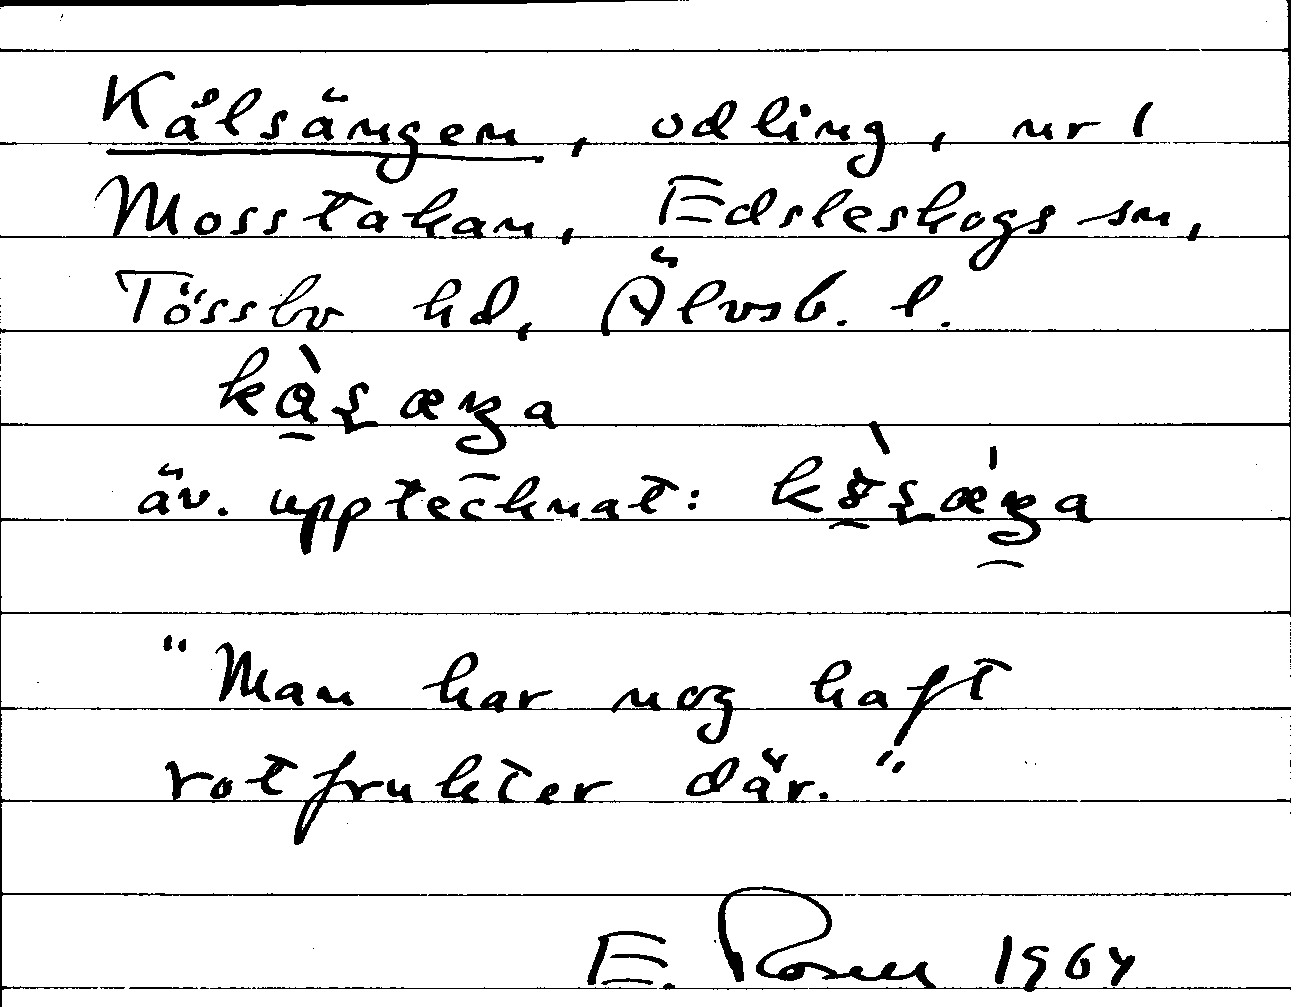 Kålsängen, odling, nr 1
Mosstakan, Edsleskogs sn,
Tössbo hd, Älvsb. l.
äv. upptecknat:
"Man har nog haft
rotfrukter där."
E. Rosen 1964